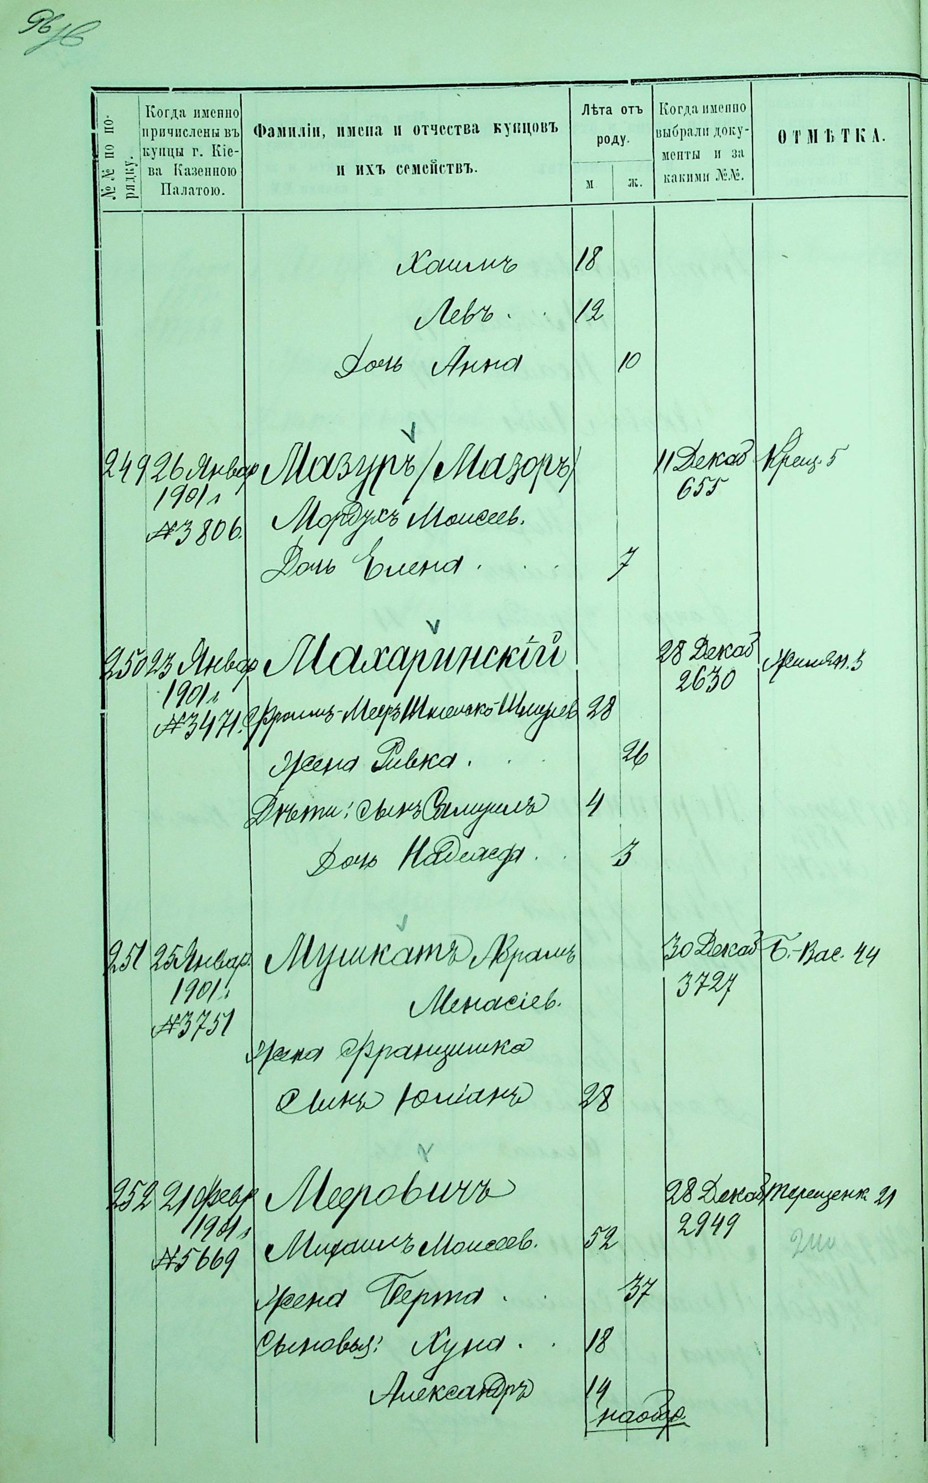 №№ по по-
рядку.
Когда именно
причислены въ
купцы г. Кіе-
ва Казенною
Палатою.
Фамиліи, имена и отчества купцовъ
и ихъ семействъ.
Лѣта отъ
роду.
м
ж.
Когда именно
выбрали доку-
менты и за
какими №№.
ОТМѢТКА.
Хаимъ 18
Левъ 12
Дочь Анна 10
249 26 Январ Мазуръ /Мазоръ/ 11 Декаб Крещ. 5
1901 г 655
№3806. Мордухъ Моисеев.
Дочь Елена 7
250 23 Январ Махаринскій 28 Декаб Жилян. 3
1901 г 2630
№3471. Фроимъ-Мееръ Шмулев 28
Жена Ривка 26
Дѣти: сынъ Самуилъ 4
Дочь Надежда 3
251 25 Январ. Мушкатъ Абрамъ 30 Декаб Б.-Вас. 44
1901 г. Менасіев. 3727
№3751
Жена Францишка
Сынъ Юліанъ 28
252 21 Февр Мееровичъ 28 Декаб Терещенк 21
1901 г 2949
№5669 Михаилъ Моисеев. 52
Жена Берта 37
Сыновья: Хуна 18
Александръ 14
на обор.